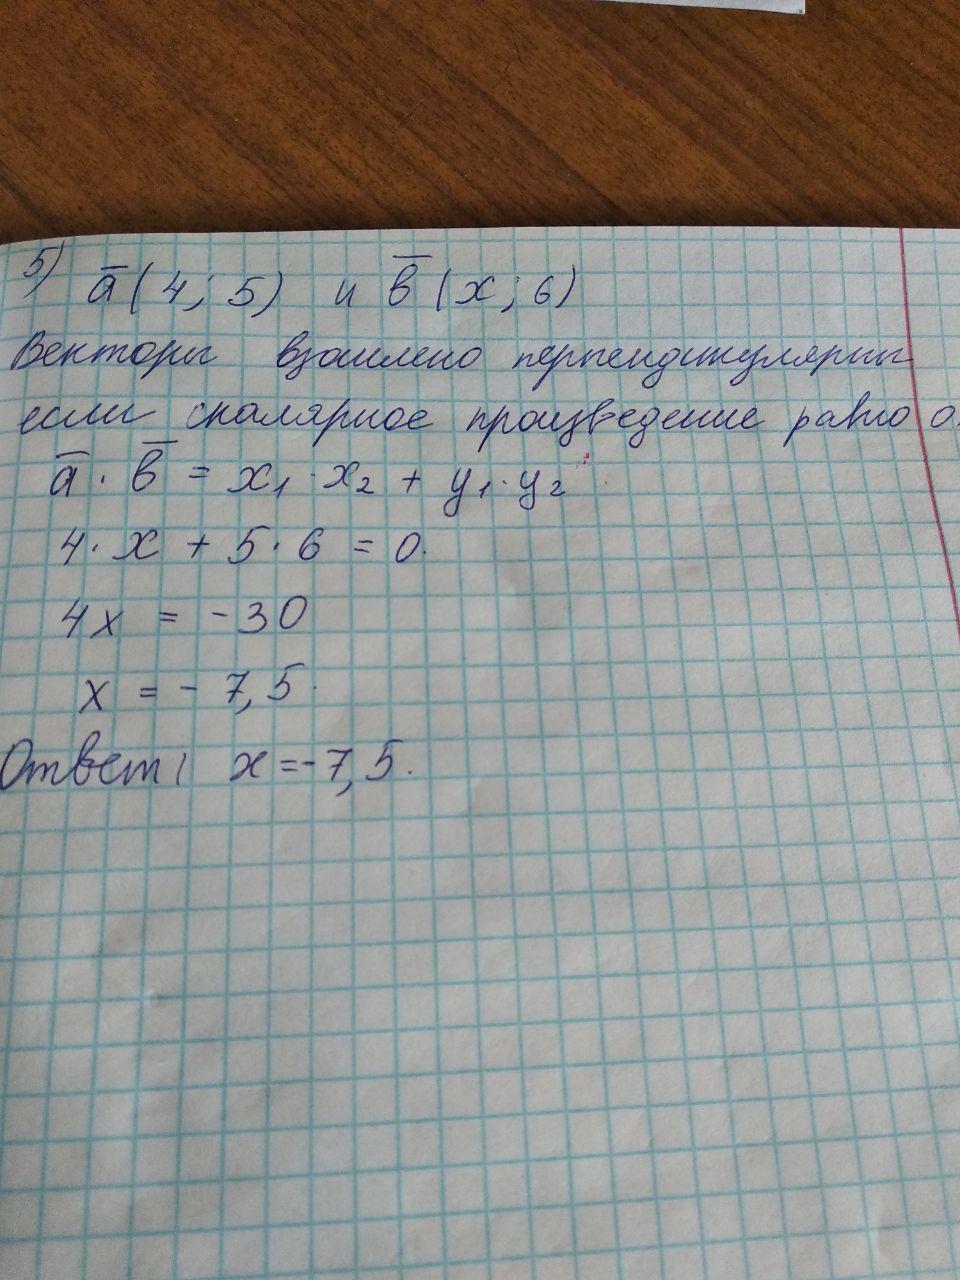 5) a̅ (4; 5) и в̅ (x; 6)
Векторы взаимно перпендикулярны
если скалярное произведение равно 0.
a̅ · в̅ = x₁ · x₂ + y₁ · y₂
4 · x + 5 · 6 = 0.
4x = -30
x = - 7,5.
Ответ: x = -7,5.